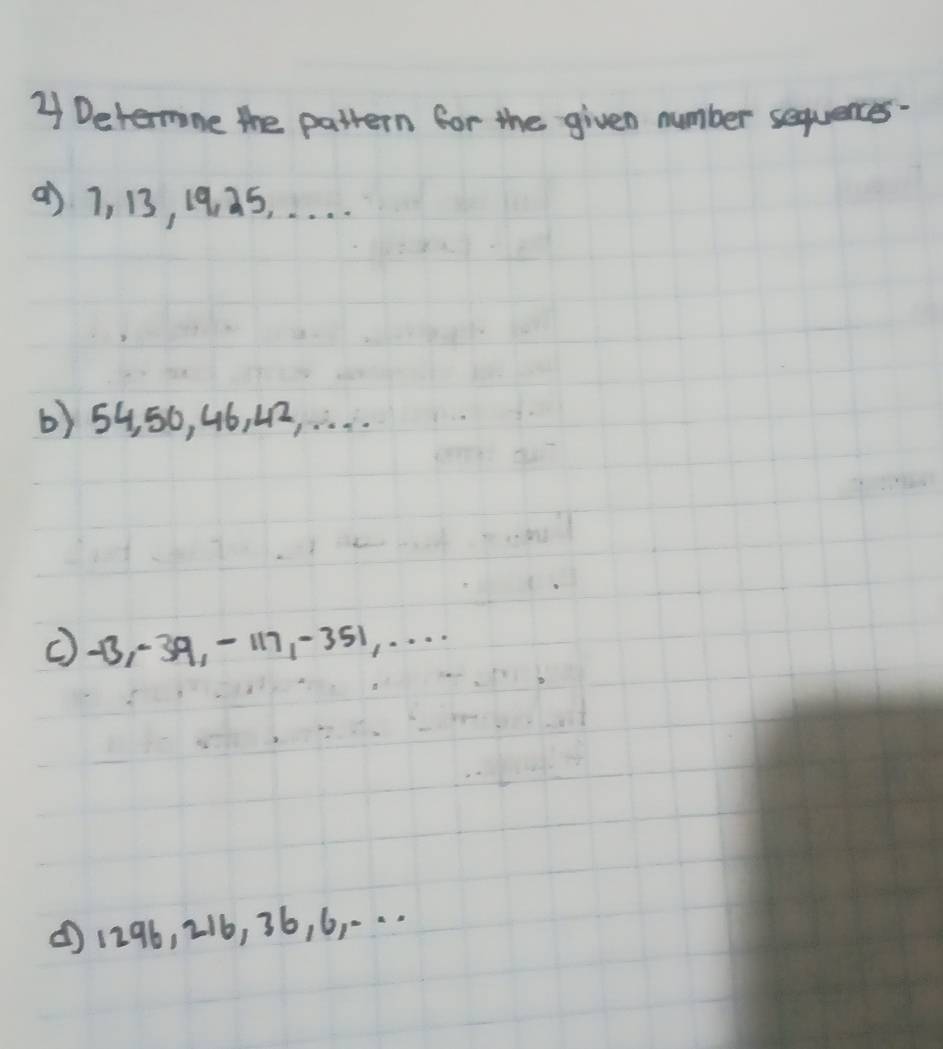 2) Determine the pattern for the given number sequences-
a) 7, 13, 19, 25, ....
b) 54, 50, 46, 42, ....
c) -13, -39, -117, -351, ....
d) 1296, 216, 36, 6, ...